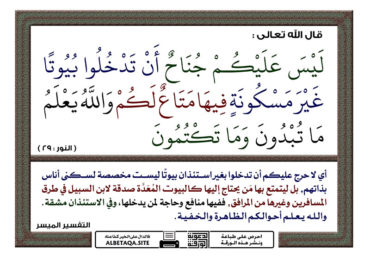 قال الله تعالى :
لَيْسَ عَلَيْكُمْ جُنَاحٌ أَنْ تَدْخُلُوا بُيُوتًا
غَيْرَ مَسْكُونَةٍ فِيهَا مَتَاعٌ لَكُمْ وَاللَّهُ يَعْلَمُ
مَا تُبْدُونَ وَمَا تَكْتُمُونَ
( النور : ٢٩ )
أي لا حرج عليكم أن تدخلوا بغير استئذان بيوتًا ليست مخصصة لسكنى أناس
بذاتهم, بل ليتمتع بها مَن يحتاج إليها كالبيوت المُعَدَّة صدقة لابن السبيل في طرق
المسافرين وغيرها من المرافق, ففيها منافع وحاجة لمن يدخلها, وفي الاستئذان مشقة.
والله يعلم أحوالكم الظاهرة والخفية.
التفسير الميسر
احرص على طباعة
ونشر هذه الورقة
فالدال على الخير كفاعله
ALBETAQA.SITE